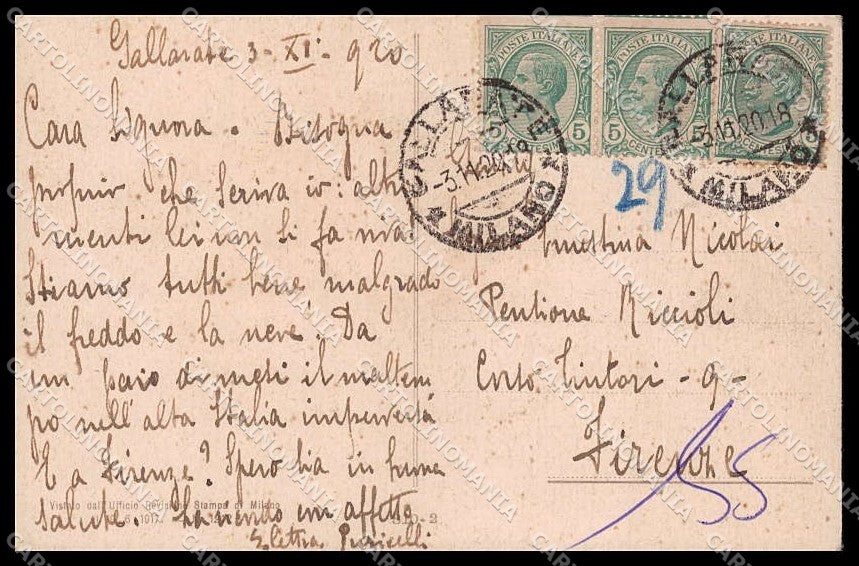 Gallarate 3-XI-920
Cara Signora. Bisogna
proprio che scriva io: altri
menti lei non si fa viva.
Stiamo tutti bene malgrado
il freddo e la neve. Da
un paio di mesi il maltem
po nell'alta Italia imperversa
E a Firenze? Spero sia in buona
salute. La ricordo con affetto
Elettra Puricelli
Vistato dall'Ufficio Revisione Stampa di Milano
1917.
310-2
POSTE ITALIANE
5 5
CENTESIMI
POSTE ITALIANE
5
CENTESIMI
POSTE ITALIANE
CENTESIMI
GALLARATE
-3.11.20.18
* MILANO *
GALLARATE
-3.11.20.18
* MILANO *
29
Ernestina Nicolai
Pensione Riccioli
Corso Tintori - 9 -
Firenze
55
CARTOLINOMANIA